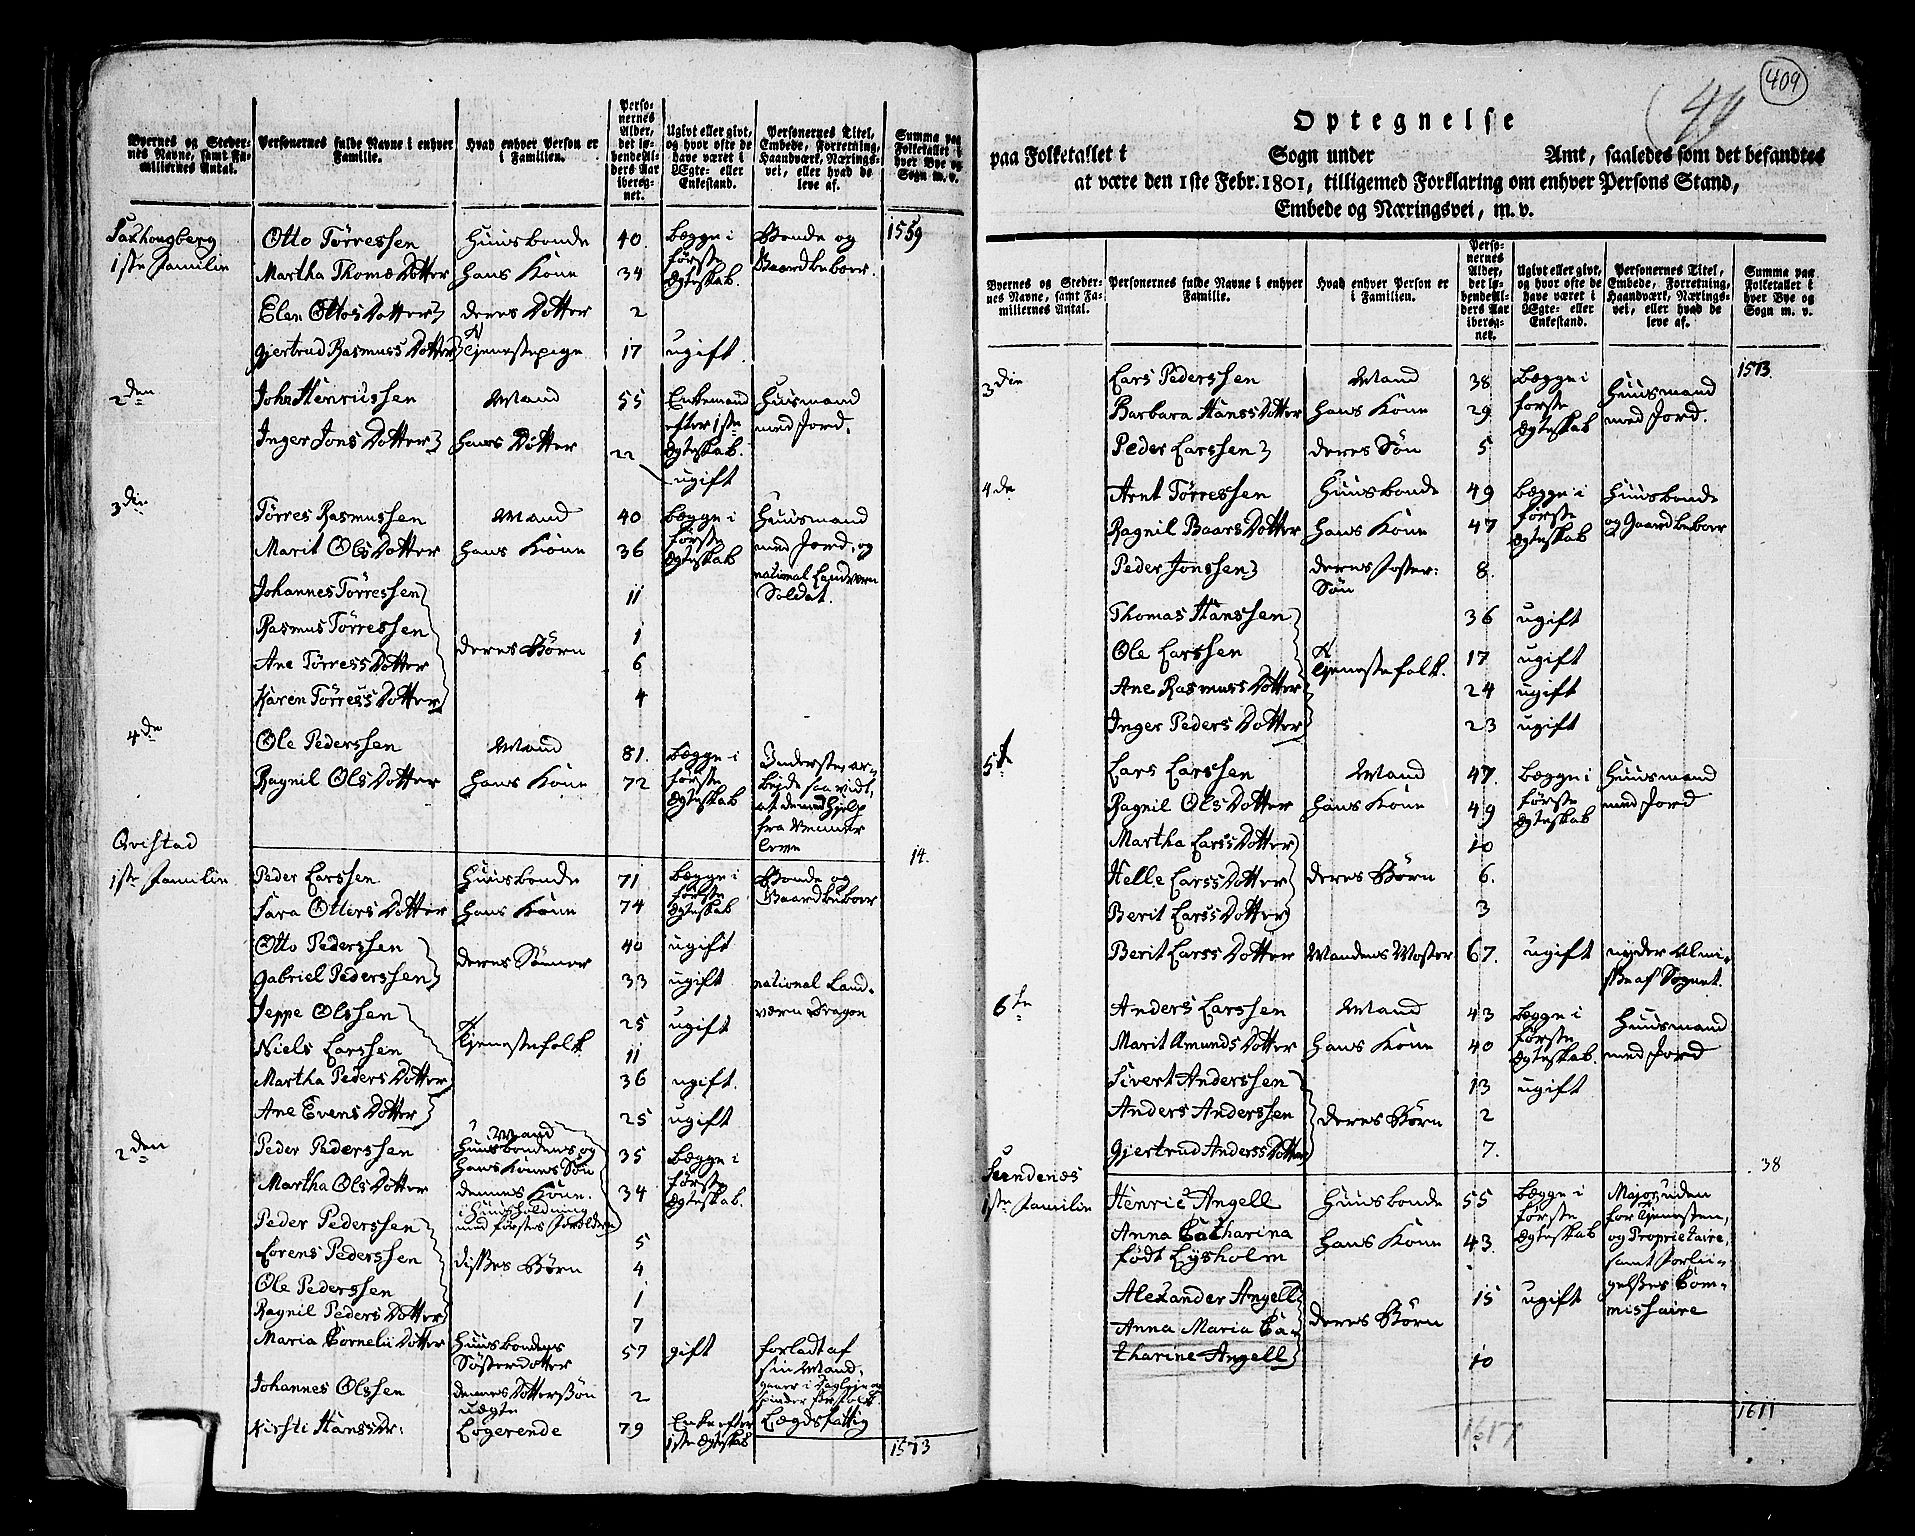 Byernes og Stedernes Navne, samt Familiernes Antal.
Personernes fulde Navne i enhver Familie.
Hvad enhver Person er i Familien.
Personernes Alder, det løbendeAlders Aar iberegnet.
Ugivt eller givt, og hvor ofte de have været i Ægte- eller Enkestand.
Personernes Titel, Embede, Forretning, Haandværk, Næringsvei, eller hvad de leve af.
Summa paa Folketallet i hver Bye og Sogn m. v.
1559
Saxhougberg
1ste Familie
Otto Tørressen Huusbonde 40. begge i første Ægteskab. Bonde og Gaardbeboer.
Martha Thomæ Dotter hans Kone 34
Elen Ottos Dotter deres Dotter 2
Gjertrud Rasmuss Dotter Tjenestepige 17 ugift
2den
John Henrikssen Mand 55 Enkemand efter 1ste Ægteskab. Huusmand med Jord.
Inger Jons Dotter hans Dotter 22 ugift
3die
Tørres Rasmussen Mand 40 begge i første Ægteskab Huusmand med Jord, og national Landværn Soldat.
Marit Ols Dotter hans Kone 36
Johannes Tørressen 11
Rasmus Tørressen deres Børn 1
Ane Tørress Dotter 6
Karen Tørress Dotter 4
4de
Ole Pederssen Mand 81. begge i første Ægteskab
Ragnil Ols Dotter hans Kone 72
fra Venner leve
14.
Qvistad
1ste Familie
Peder Larssen Huusbonde 71 begge i første Ægteskab Bonde og Gaardbeboer
Sara Otters Dotter hans Kone 74
Otto Pederssen deres Sønner 40 ugift
Gabriel Pederssen 33 ugift national Landværn Dragon
Jeppe Olssen 25 ugift
Niels Larssen Tjenestefolk 11
Martha Peders Dotter 36 ugift.
Ane Evens Dotter 25 ugift
2den
Peder Pederssen Mand Huusbondens og hans Kones Søn 35 begge i første Ægteskab.
Martha Ols Dotter dennes Kone. 34
i Huusholdning med førstes Forældre
Peder Pederssen 5
Lorens Pederssen disses Børn 4
Ole Pederssen 1
Ragnil Peders Dotter 7
Maria Cornelii Dotter Huusbondens Søsterdotter 57 gift forladt af sin Mand,
Johannes Olssen dennes Dottersøn uægte 2
Kirsti Hanss Dr: Logerende 79 Enke efter 1ste Ægteskab Lægdsfattig
1573
409
Optegnelse
paa Folketallet i Sogn under Amt, saaledes som det befandtes
at være den 1ste Febr. 1801, tilligemed Forklaring om enhver Persons Stand,
Embede og Næringsvei, m. v.
Byernes og Stedernes Navne, samt Familiernes Antal.
Personernes fulde Navne i enhver Familie.
Hvad enhver Person er i Familien.
Personernes Alder, det løbendeAlders Aar iberegnet.
Ugivt eller givt, og hvor ofte de have været i Ægte- eller Enkestand.
Personernes Titel, Embede, Forretning, Haandværk, Næringsvei, eller hvad de leve af.
Summa paa Folketallet i hver Bye og Sogn m. v.
1573.
3die
Lars Pederssen Mand 38 begge i første Ægteskab Huusmand med Jord.
Barbara Hanss Dotter hans Kone 29
Peder Larssen deres Søn 5
4de
Arnt Tørressen Huusbonde 49 begge i første Ægteskab Huusbonde og Gaardbeboer
Ragnil Baars Dotter hans Kone 47
Peder Jonssen deres foster: Søn 8.
Thomas Hanssen 36 ugift
Ole Larssen Tjenestefolk. 17 ugift
Ane Rasmuss Dotter 24 ugift
Inger Peders Dotter 23 ugift
5t
Lars Larssen Mand 47. begge i første Ægteskab Huusmand med Jord
Ragnil Ols Dotter hans Kone 49
Martha Larss Dotter 10
Helle Larss Dotter deres Børn 6.
Berit Larss Dotter 3
Berit Larss Dotter Mandens Moster 67. ugift nyder Almisse af Sognet.
6te
Anders Larssen Mand 43 begge i første Ægteskab Huusmand med Jord
Marit Amunds Dotter hans Kone 40
Sivert Anderssen 13 ugift
Anders Anderssen deres Børn 2
Gjertrud Anderss Dotter 7.
38
1ste Familie
Henric Angell Huusbonde 55 begge i første Ægteskab Major uden for Tjenesten, og Proprietaire, samt Forligelses Commissaire
Anna Catharina født Lysholm hans Kone 43.
Alexander Angell deres Børn 15 ugift
Anna Maria Catharine Angell 10
1611
1617